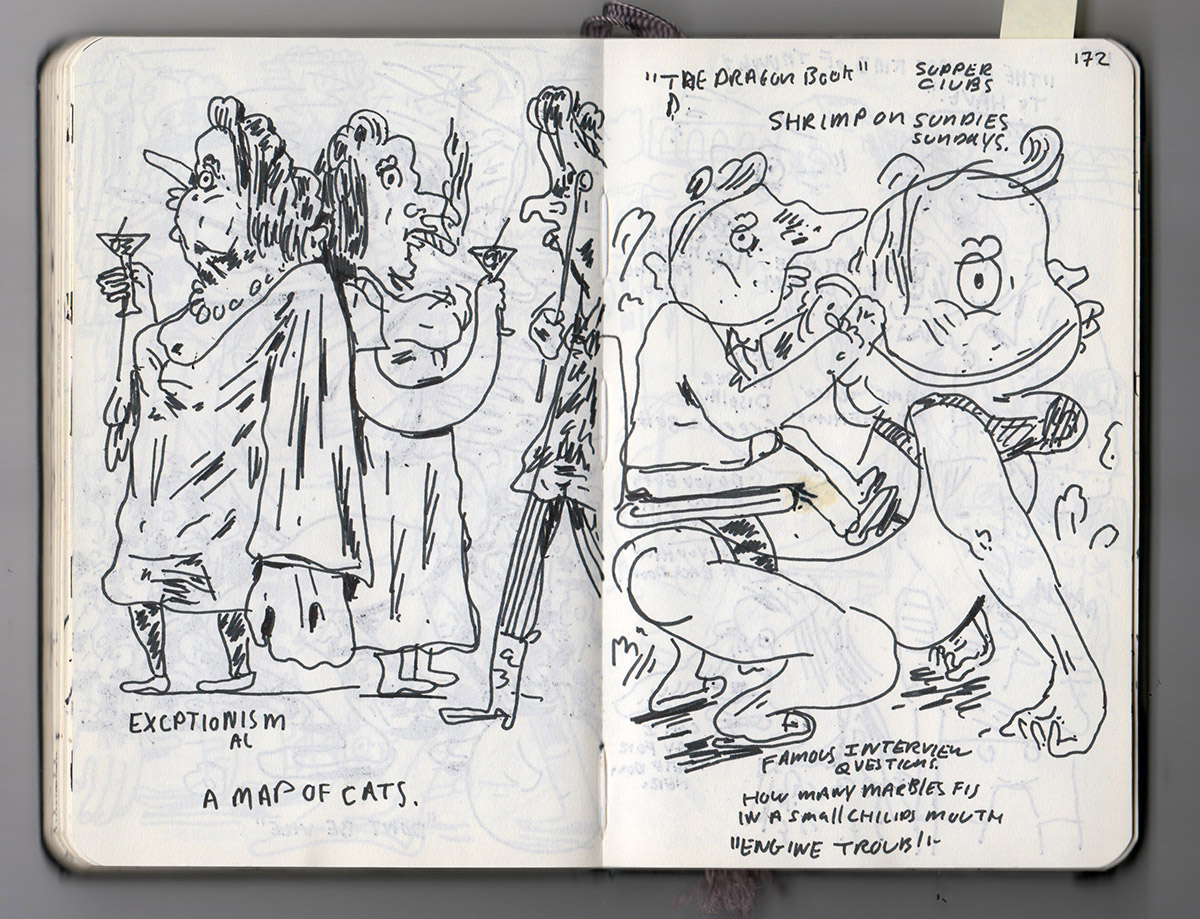 EXCPTIONISM
AL
A MAP OF CATS.
172
"THE DRAGON BOOK"
D.
SUPPER
CLUBS
SHRIMP ON SUNDIES
SUNDAYS.
FAMOUS INTERVIEW
QUESTIONS.
HOW MANY MARBLES FIS
IN A SMALL CHILIDS MOUTH
"ENGINE TROUBLE"